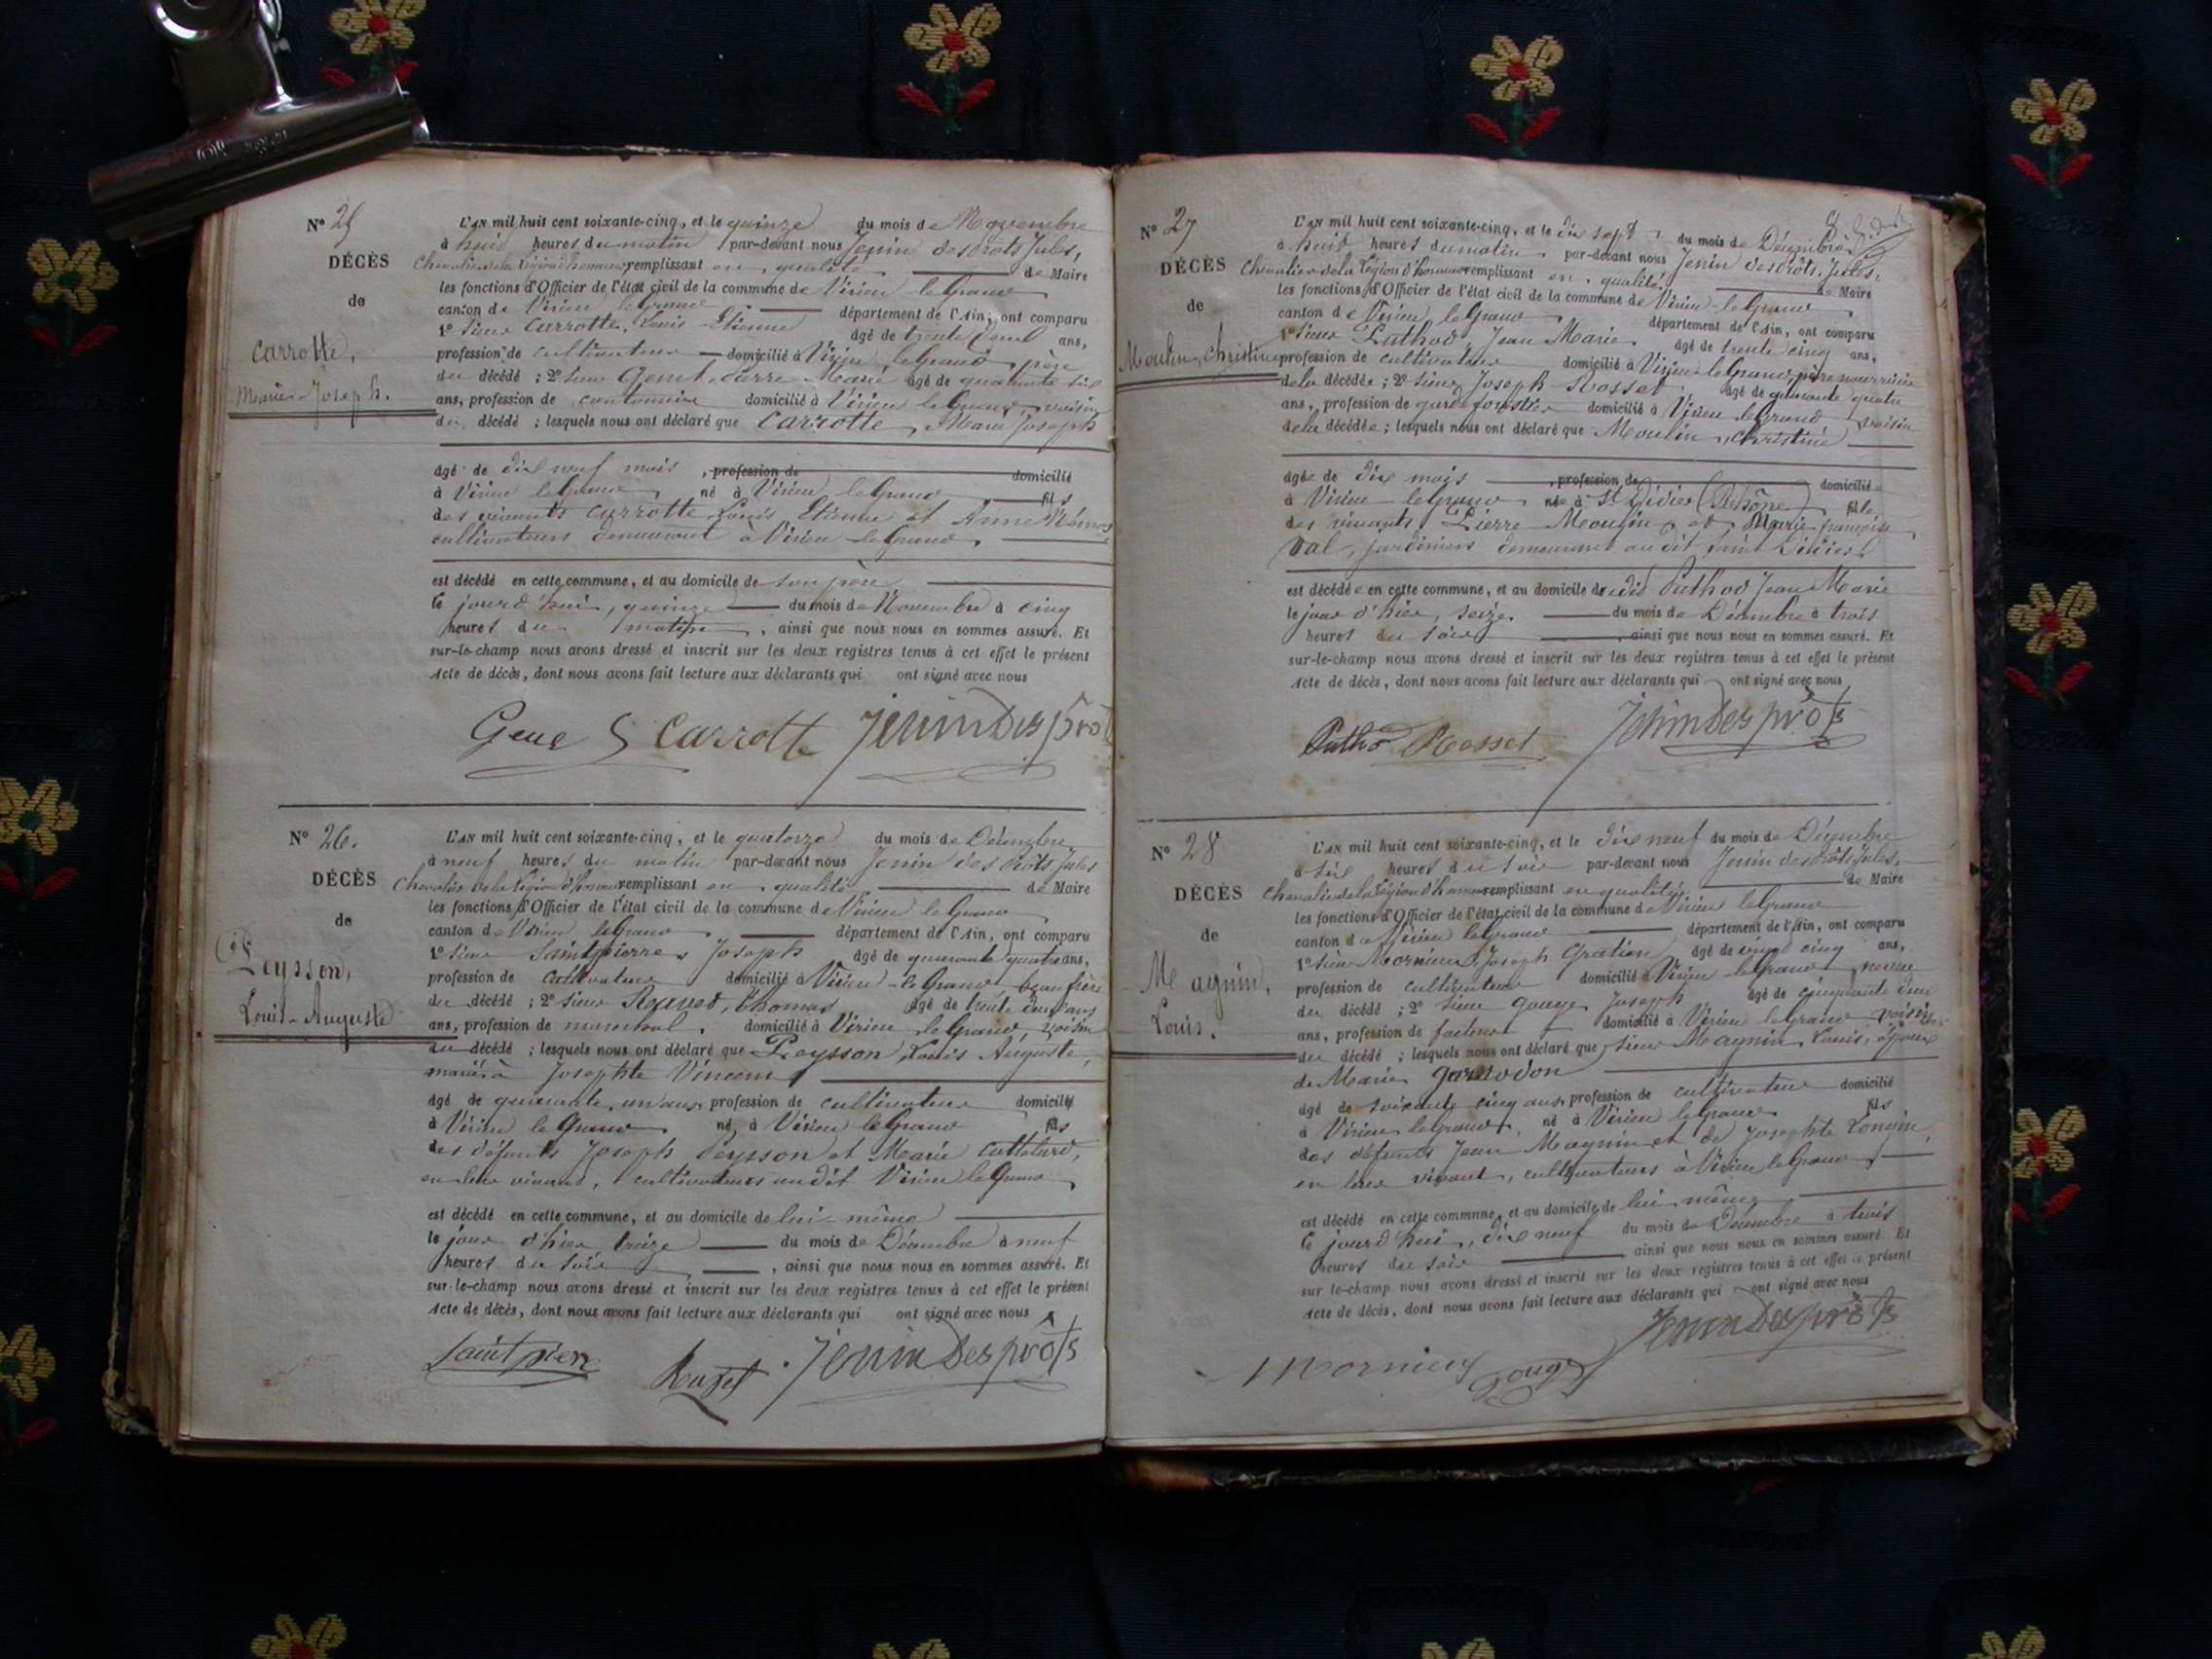 N° 25
DÉCÈS
de
Carrotte,
Marie-Joseph.
L'AN mil huit cent soixante-cinq, et le quinze du mois de Novembre
à huit heures du matin par-devant nous Jenin desprôts Jules,
Chevalier de la Légion d'honneur remplissant en qualité de Maire
les fonctions d'Officier de l'état civil de la commune de Virieu le Grand
canton de Virieu le Grand département de l'Ain, ont comparu
1° sieur Carrotte, Louis Etienne âgé de trente deux ans,
profession de cultivateur domicilié à Virieu le Grand père
du décédé ; 2° sieur Pierre Marie âgé de quarante six
ans, profession de cantonnier domicilié à Virieu le Grand, voisin
du décédé ; lesquels nous ont déclaré que Carrotte, Marie Joseph
âgé de dix neuf mois , profession de domicilié
à Virieu le Grand né à Virieu le Grand fils
des vivants Carrotte, Louis Etienne et Anne
cultivateurs demeurant à Virieu le Grand.
est décédé en cette commune, et au domicile de son père
le jourd'hui, quinze du mois de Novembre à cinq
heures du matin , ainsi que nous nous en sommes assuré. Et
sur-le-champ nous avons dressé et inscrit sur les deux registres tenus à cet effet le présent
Acte de décès, dont nous avons fait lecture aux déclarants qui ont signé avec nous
Carrotte JeninDesprôts
N° 26.
DÉCÈS
de
Peysson,
Louis-Auguste
L'AN mil huit cent soixante-cinq, et le quatorze du mois de Décembre
à neuf heures du matin par-devant nous Jenin desprôts Jules
Chevalier de la Légion d'honneur remplissant en qualité de Maire
les fonctions d'Officier de l'état civil de la commune de Virieu le Grand
canton de Virieu le Grand département de l'Ain, ont comparu
1° sieur Saintpierre, Joseph âgé de quarante quatre ans,
profession de cultivateur domicilié à Virieu-le Grand beau frère
du décédé ; 2° sieur Thomas âgé de trente deux ans
ans, profession de maréchal, domicilié à Virieu le Grand, voisin
du décédé ; lesquels nous ont déclaré que Peysson, Louis Auguste,
marié à Josephte Vincent
âgé de quarante un ans, profession de cultivateur domicilié
à Virieu le Grand né à Virieu le Grand fils
des défunts Joseph Peysson et Marie
en leur vivant, cultivateurs audit Virieu le Grand
est décédé en cette commune, et au domicile de lui-même
le jour d'hier treize du mois de Décembre à neuf
heures du soir , ainsi que nous nous en sommes assuré. Et
sur-le-champ nous avons dressé et inscrit sur les deux registres tenus à cet effet le présent
Acte de décès, dont nous avons fait lecture aux déclarants qui ont signé avec nous
Saintpierre JeninDesprôts
N° 27
DÉCÈS
de
Moulin, Christine
L'AN mil huit cent soixante-cinq, et le dix sept du mois de Décembre
à huit heures du matin par-devant nous Jenin desprôts, Jules,
Chevalier de la Légion d'honneur remplissant en qualité de Maire
les fonctions d'Officier de l'état civil de la commune de Virieu-le Grand
canton de Virieu le Grand département de l'Ain, ont comparu
1° sieur Puthod, Jean Marie âgé de trente cinq ans,
profession de cultivateur domicilié à Virieu-le Grand, père nourricier
de la décédée ; 2° sieur Joseph Rosset âgé de quarante quatre
ans, profession de garde forestier domicilié à Virieu le Grand voisin
de la décédée ; lesquels nous ont déclaré que Moulin, Christine
âgée de dix mois , profession de domiciliée
à Virieu le Grand née à St Didier (Rhône) fille
des vivants Pierre Moulin et Marie françoise
Val, jardiniers demeurant audit Saint Didier
est décédée en cette commune, et au domicile dudit Puthod Jean Marie
le jour d'hier, seize du mois de Décembre à trois
heures du soir , ainsi que nous nous en sommes assuré. Et
sur-le-champ nous avons dressé et inscrit sur les deux registres tenus à cet effet le présent
Acte de décès, dont nous avons fait lecture aux déclarants qui ont signé avec nous
Puthod Rosset JeninDesprôts
N° 28
DÉCÈS
de
Magnin,
Louis.
L'AN mil huit cent soixante-cinq, et le dix neuf du mois de Décembre
à six heures du soir par-devant nous Jenin desprôts Jules,
Chevalier de la Légion d'honneur remplissant en qualité de Maire
les fonctions d'Officier de l'état civil de la commune de Virieu le Grand
canton de Virieu le Grand département de l'Ain, ont comparu
1° sieur Mornieux, Joseph Gratien âgé de vingt cinq ans,
profession de cultivateur domicilié à Virieu le Grand neveu
du décédé ; 2° sieur Gouge Joseph âgé de cinquante deux
ans, profession de facteur domicilié à Virieu le Grand voisin
du décédé ; lesquels nous ont déclaré que sieur Magnin, Louis, époux
de Marie
âgé de soixante cinq ans, profession de cultivateur domicilié
à Virieu le Grand, né à Virieu le Grand fils
des défunts Jean Magnin et de Josephte Longin,
en leur vivant, cultivateurs à Virieu le Grand,
est décédé en cette commune, et au domicile de lui même
le jourd'hui, dix neuf du mois de Décembre à trois
heures du soir ainsi que nous nous en sommes assuré. Et
sur-le-champ nous avons dressé et inscrit sur les deux registres tenus à cet effet le présent
Acte de décès, dont nous avons fait lecture aux déclarants qui ont signé avec nous
Mornieux Gouge JeninDesprôts